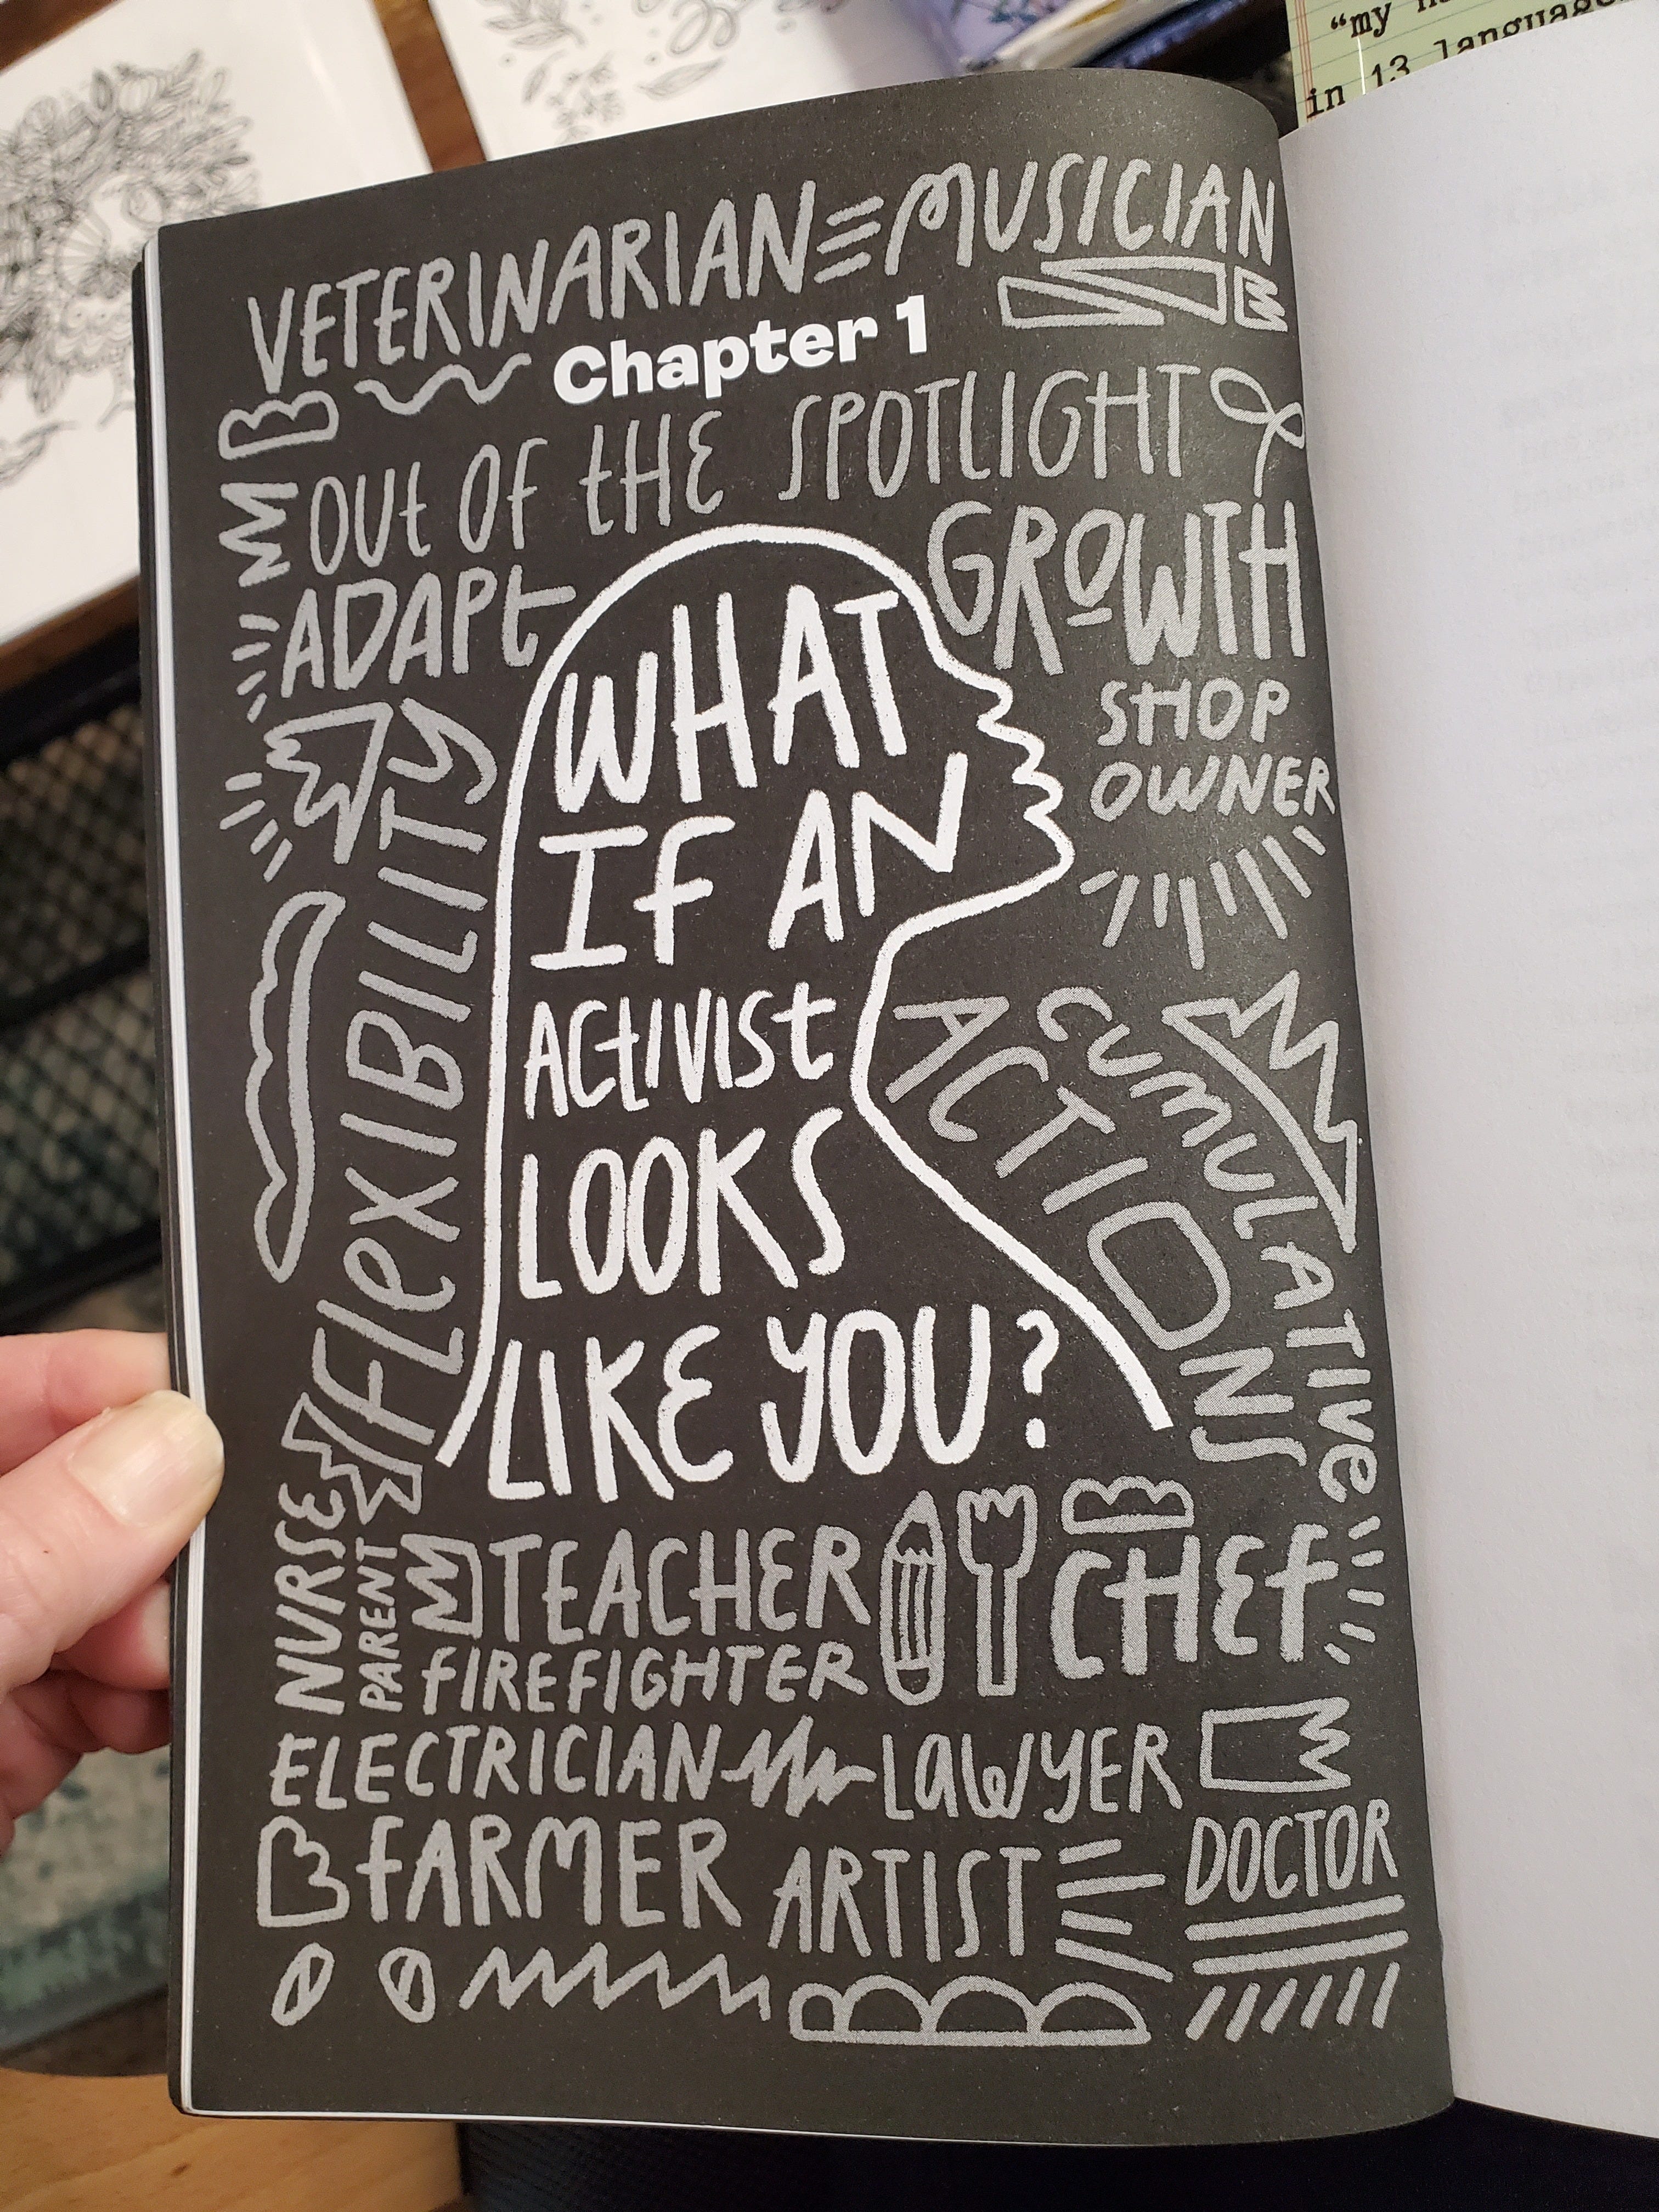 "my
in 13 language
VETERINARIAN MUSICIAN
Chapter 1
OUt OF tHE SPOTLIGHT
ADAPt
GROWTH
SHOP
OWNER
FLexIBILITy
WHAT
IF AN
ACtIVISt
LOOKS
LIKE YOU?
CUMULATIVe
ACTIONS
NURSE
PARENT
TEACHER
CHEF
FIREFIGHTER
ELECTRICIAN LaWYER
FARMER ARTIST DOCTOR